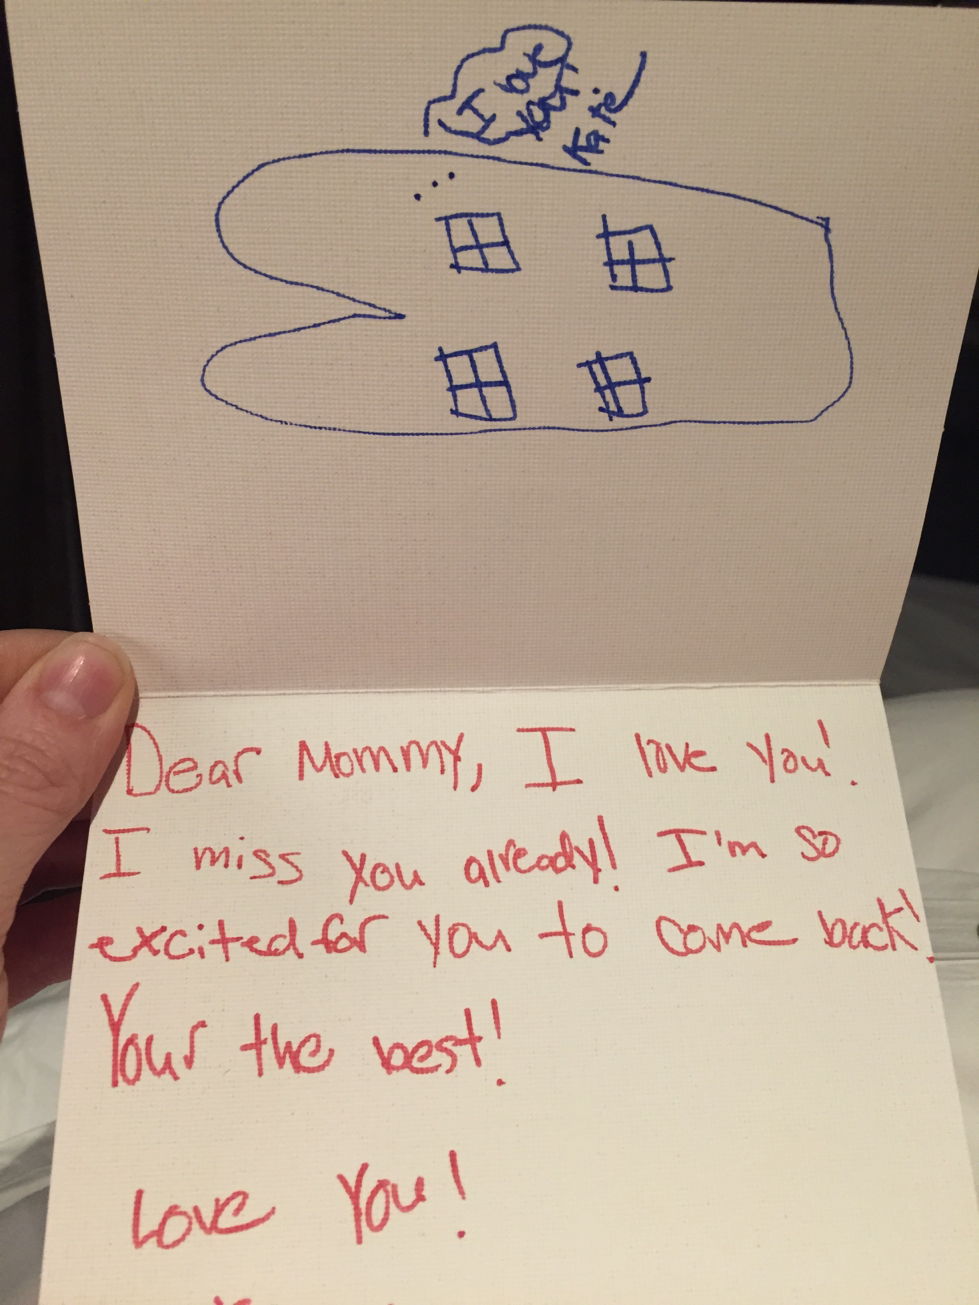 I love
you!
Katie
Dear Mommy, I love you!
I miss you already! I'm so
excited for you to come back!
Your the best!
Love You!